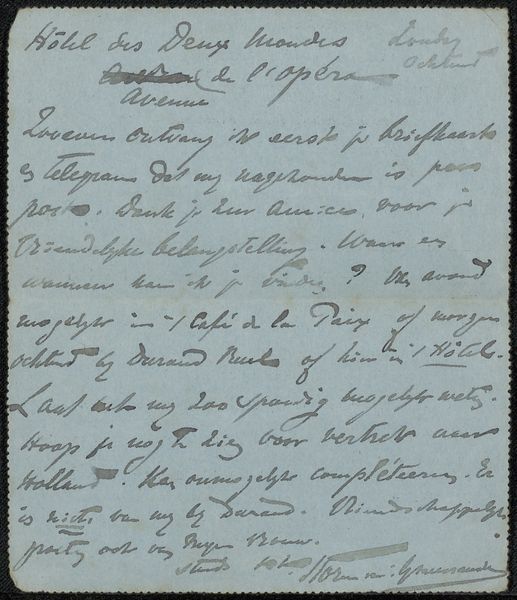 Hôtel des Deux Mondes Zondag
ochtend
de l'opéra
Avenue
Zooeven ontvang ik eerst je briefkaart
en telegram dat mij nagezonden is per
post. Dank je zeer amice, voor je
vriendelijke belangstelling. Waar en
wanneer kan ik je vinden? Van avond
mogelijk in 't Café de la Paix of morgen
ochtend bij Durand Ruel of hier in 't Hôtel.
Laat mij zoo spoedig mogelijk weten.
Hoop je nog te zien voor vertrek naar
Holland. Kan onmogelijk compléteeren. Er
is niets van mij bij Durand. Vriendschappelijke
groeten ook van mijn vrouw.
Storm van 's Gravesande